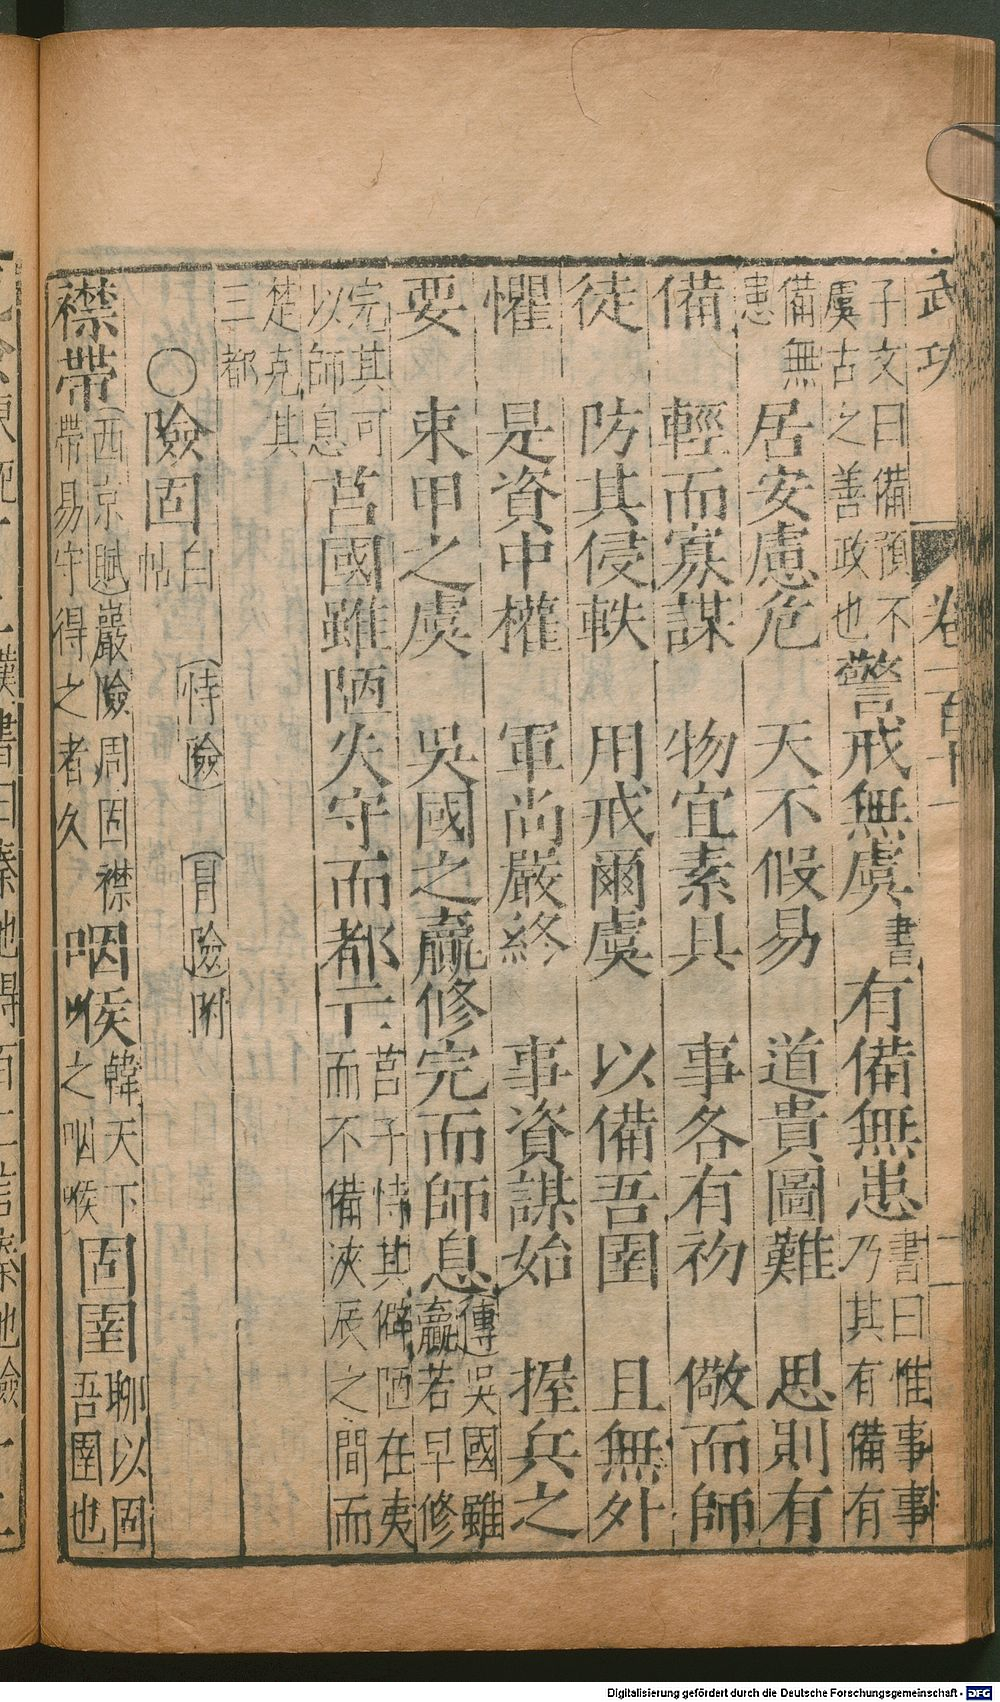 武功 卷一百十一 二
子文曰備預不
虞古之善政也
警戒無虞書有備無患
書曰惟事事
乃其有備有
備無
患
居安慮危 天不假易 道貴圖難 思則有
備 輕而寡謀 物宜素具 事各有初 儆而師
徒 防其侵軼 用戒爾虞 以備吾圉 且無外
懼 是資中權 軍尚嚴終 事資謀始 握兵之
要 束甲之虞 吳國之羸修完而師息
傳吳國雖
羸若早修
完其可
以師息
莒國雖陋失守而都亡
莒子恃其僻陋在夷
而不備浹辰之間而
楚克其
三都
○險固
白
帖
恃險 冒險附
襟帶
西京賦巖險周固襟
帶易守得之者久
咽喉
韓天下
之咽喉
固圉
聊以固
吾圉也
Digitalisierung gefördert durch die Deutsche Forschungsgemeinschaft - DFG